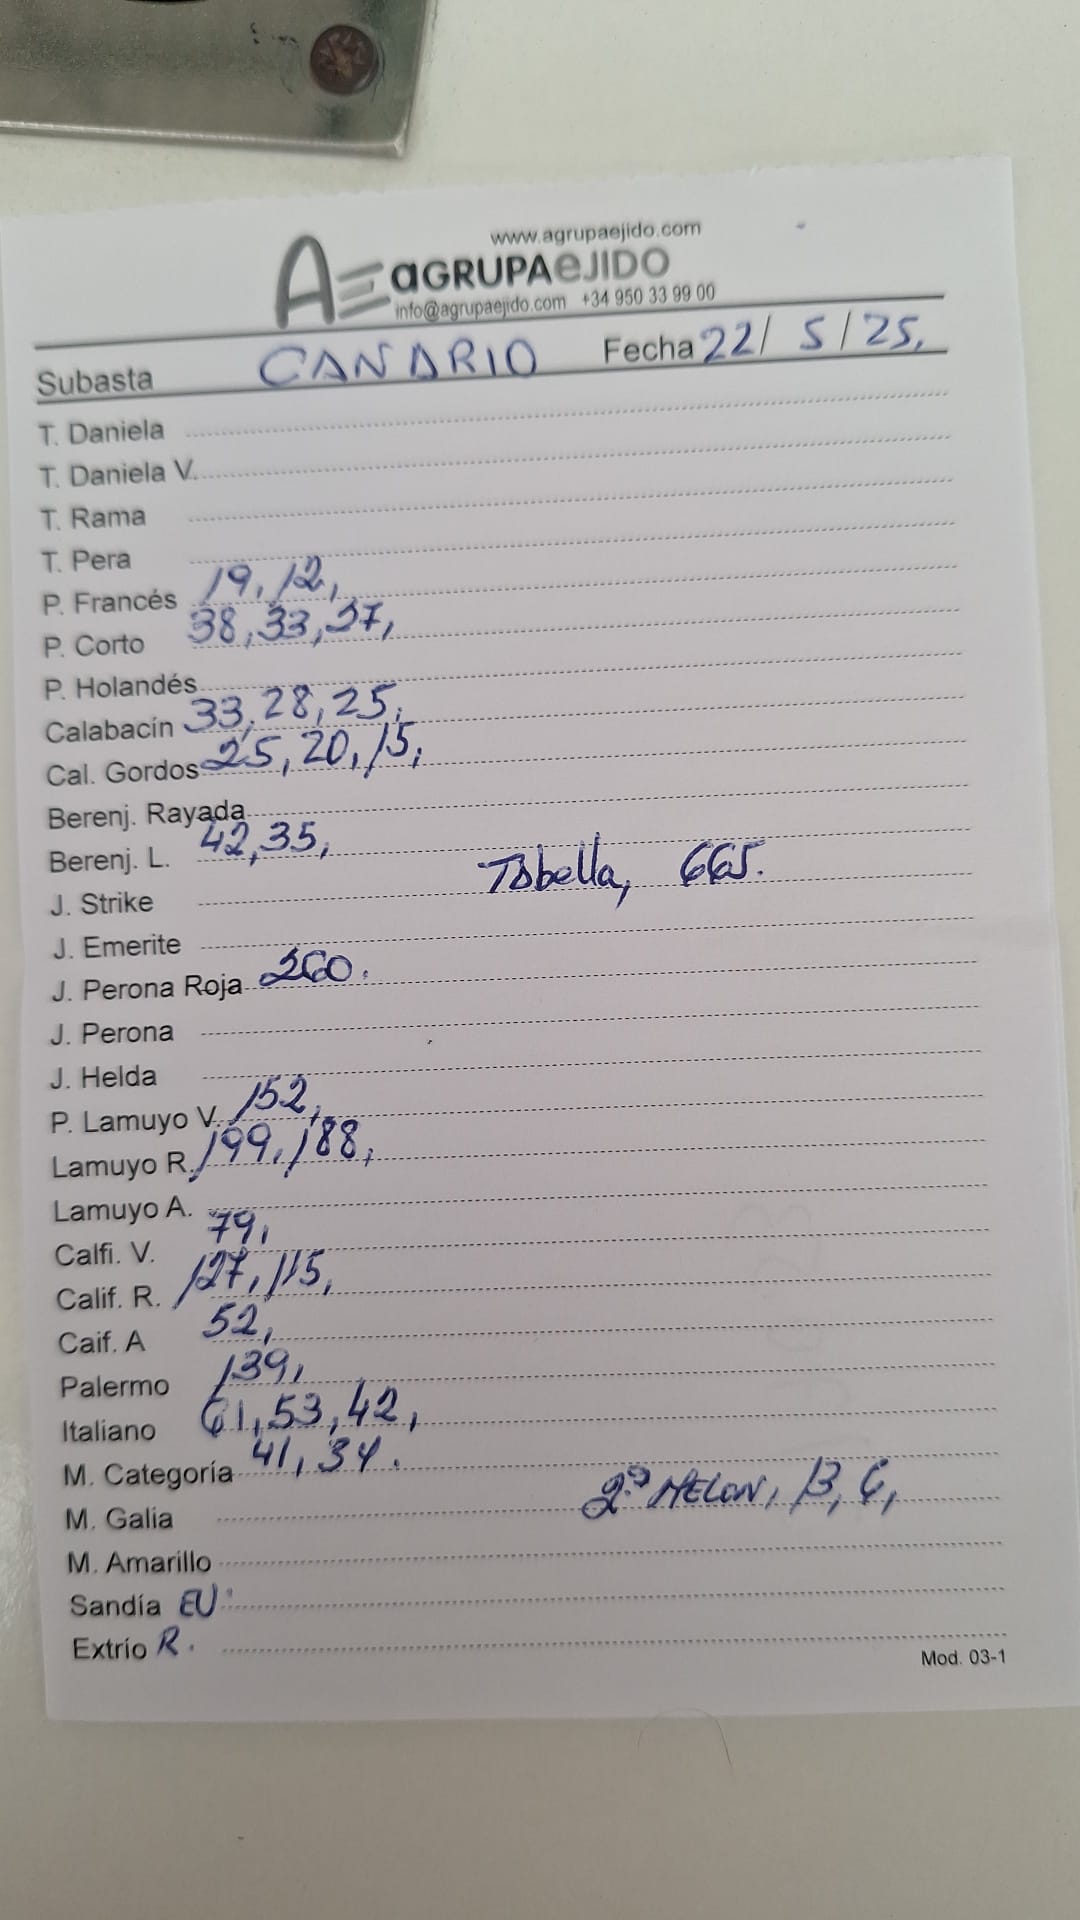 www.agrupaejido.com
AE aGRUPAeJIDO
info@agrupaejido.com +34 950 33 99 00
Subasta CANARIO Fecha 22/ 5/25,
T. Daniela
T. Daniela V.
T. Rama
T. Pera
P. Francés 19, 12,
P. Corto 38, 33, 27,
P. Holandés
Calabacín 33, 28, 25,
Cal. Gordos 25, 20, 15,
Berenj. Rayada
Berenj. L. 42, 35,
Tabella, 665.
J. Strike
J. Emerite
J. Perona Roja 260.
J. Perona
J. Helda
P. Lamuyo V. 152,
Lamuyo R. 199, 188,
Lamuyo A.
Calfi. V. 79,
Calif. R. 127, 115,
Caif. A 52,
Palermo 139,
Italiano 61, 53, 42,
M. Categoría 41, 34.
M. Galia 2ª MELON, 13, 6,
M. Amarillo
Sandía EU.
Extrío R.
Mod. 03-1